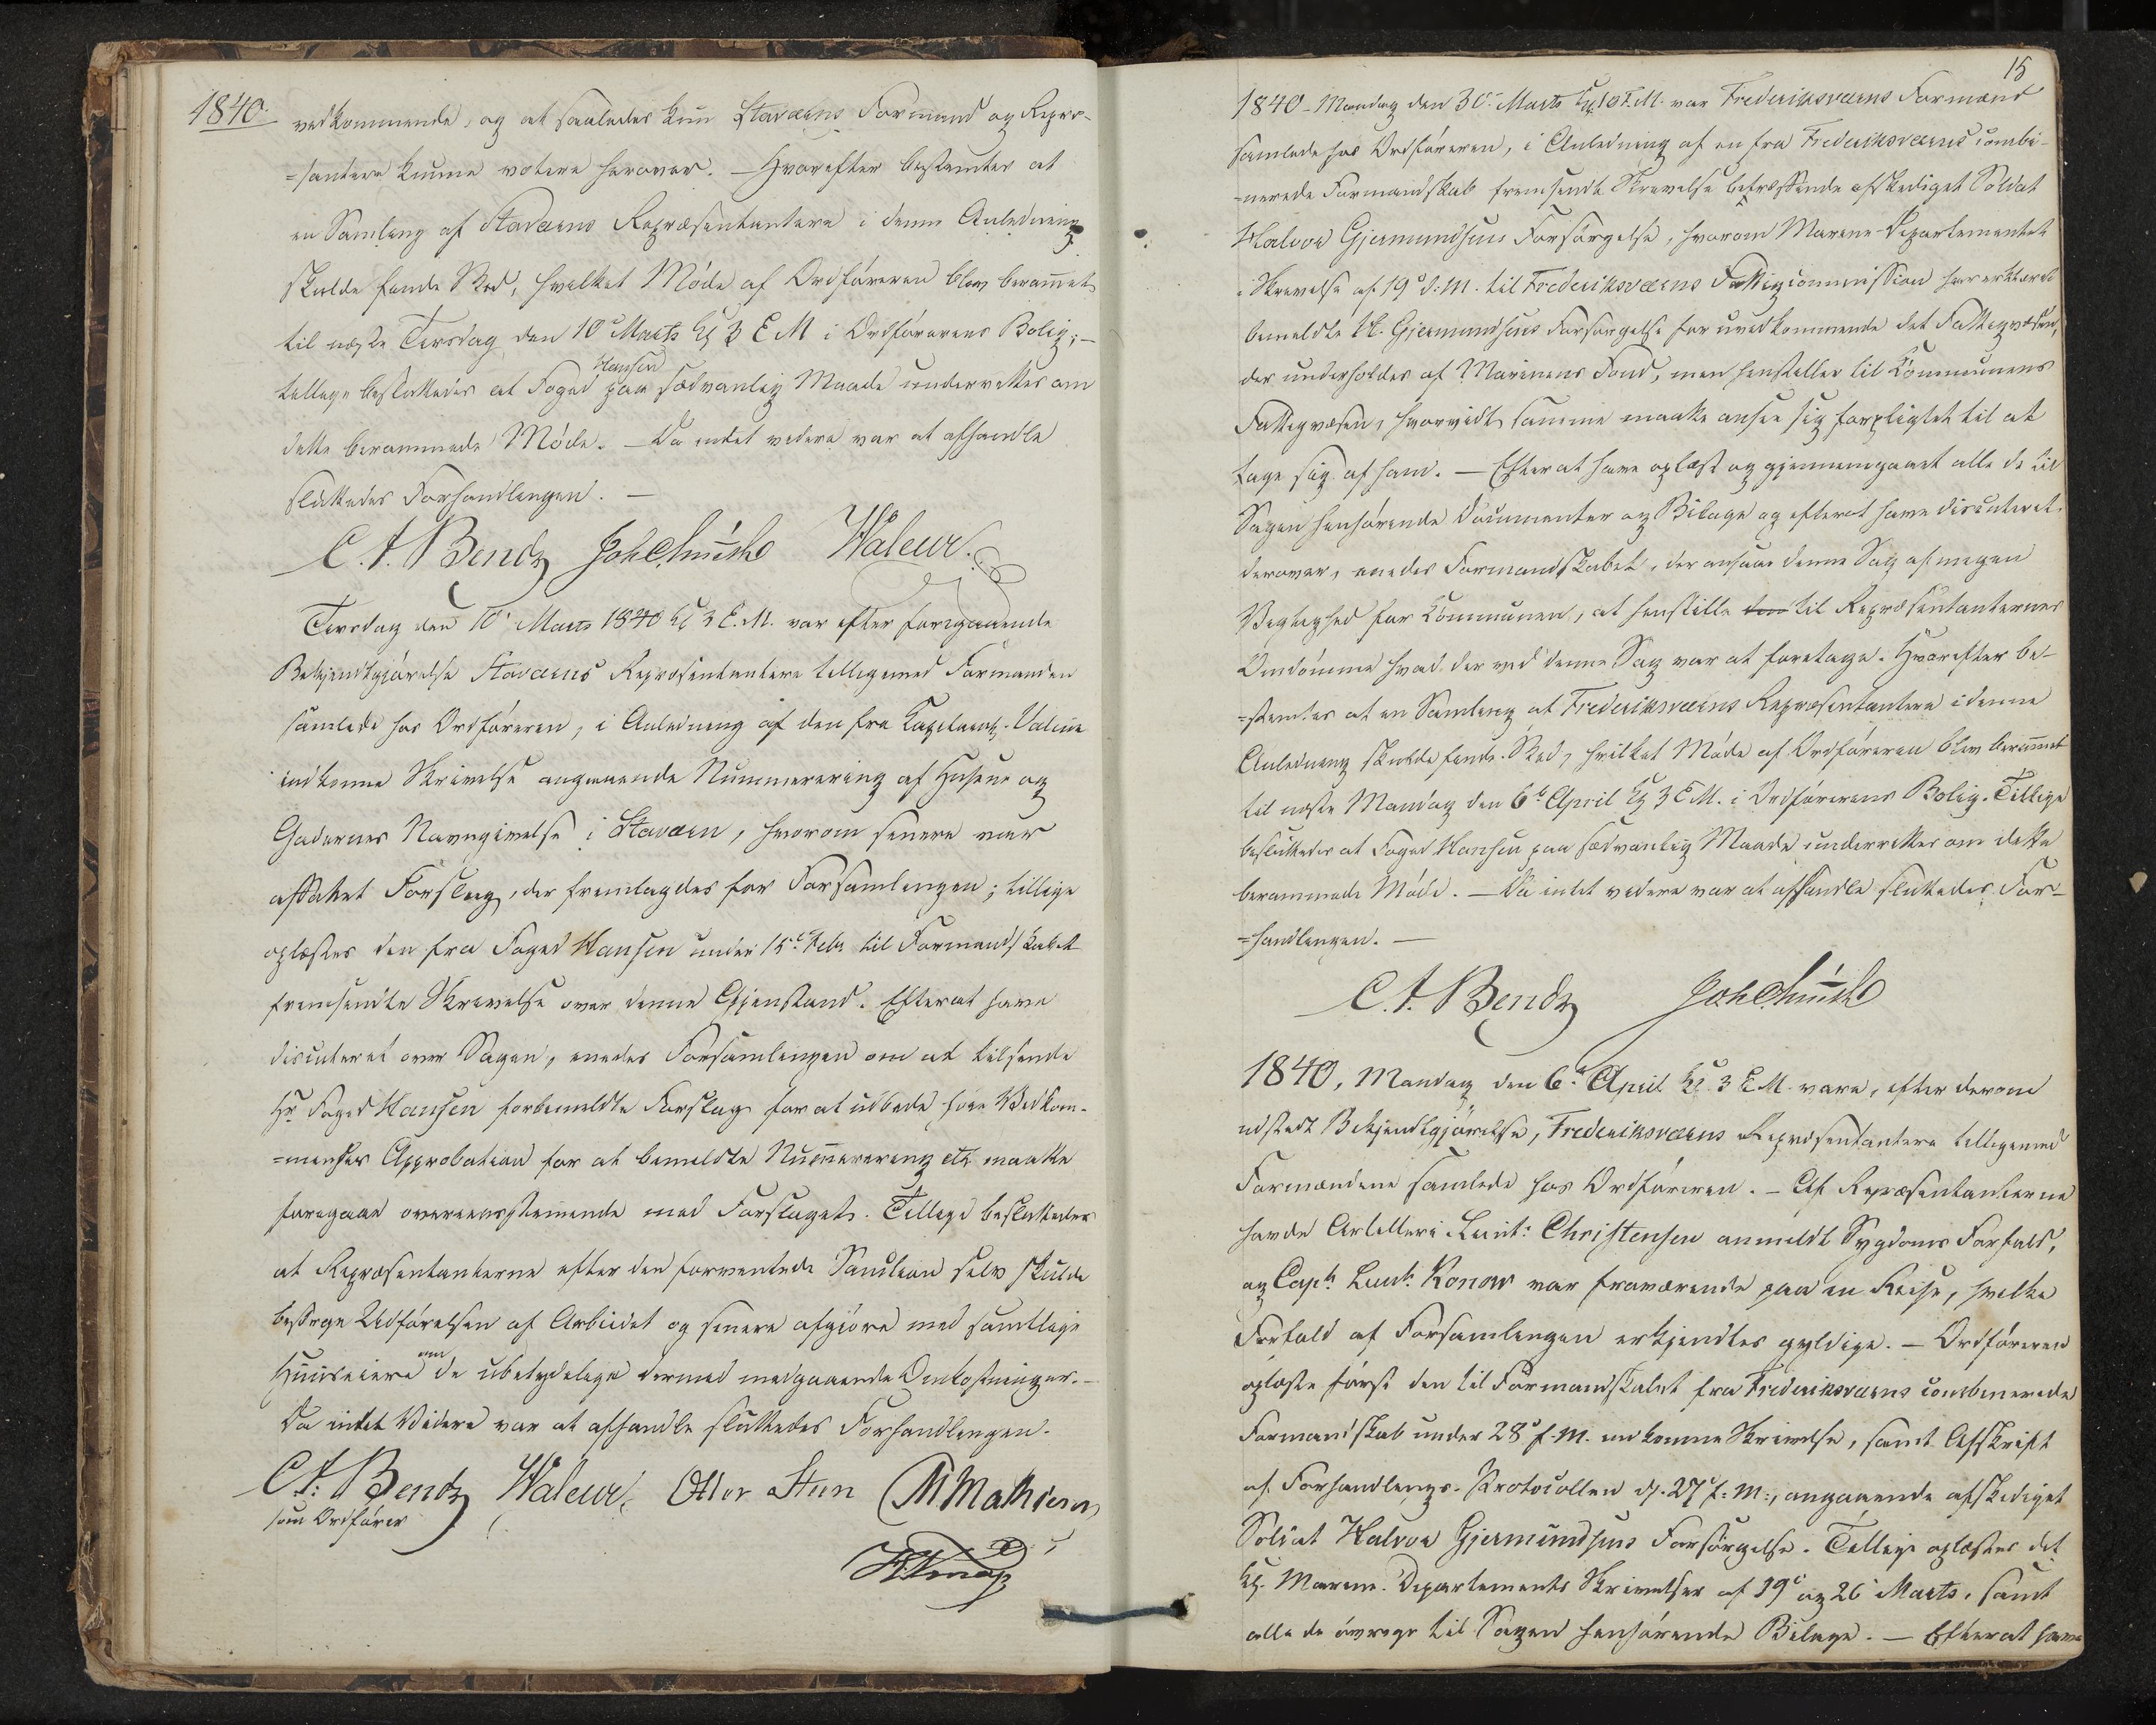 1840.
vedkommende, og at saaledes kun Staværns Formænd og Repræ-
=sentere kunne votere herover. – Hvorefter bestemtes at
en Samling af Staværns Repræsentantere i denne Anledning
skulde finde Sted, hvilket Møde af Ordføreren blev beram̅et
til næste Tirsdag den 10de Marts Kl 3 E M i Ordførerens Bolig; –
tillige besluttedes at Foged Hansen paa sædvanlig Maade underrettes om
dette berammede Møde. – Da intet videre var at afhandle
sluttedes Forhandlingen. –
C. A. Bendz Joh Chünch Waleur.
Tirsdag den 10de Marts 1840 Kl 3 E.M. var efter foregaaende
Bekjendtgjørelse Staværns Repræsentantere tilligemed Formanden
samlede hos Ordføreren, i Anledning af den fra Waleur
indkomne Skrivelse angaaende Nummerering af Husene og
Gadernes Navngivelse i Staværn, hvorom senere var
affattet Forslag, der fremlagdes for Forsamlingen; tillige
oplæstes den fra Foged Hansen under 15de Febr til Formandskabet
fremsendte Skrivelse over denne Gjenstand. Efterat have
discuteret over Sagen, enedes Forsamlingen om at tilsende
Hr Foged Hansen forbemeldte Forslag for at udbede høie Vedkom-
=mendes Approbation for at bemeldte Num̅erering etc maatte
foregaae overeensstemmende med Forslaget. Tillige besluttedes
at Repræsentanterne efter den forventede Sanction selv skulde
besørge Udførelsen af Arbeidet og senere afgiøre med samtlige
Huuseiere om de ubetydelige dermed medgaaende Omkostninger. –
Da intet Videre var at afhandle sluttedes Forhandlingen.
C. A. Bendz Waleur. Stun M Mathiesen
som Ordfører
15
1840 – Mandag den 30te Marts Kl 10 F.M. var Frederiksværns Formænd
samlede hos Ordføreren, i Anledning af en fra Frederiksværns combi-
=nerede Formandskab fremsendt Skrivelse betræffende afskediget Soldat
Halvor Gjermundsens Forsørgelse, hvorom Marine-Departementet
i Skrivelse af 19de d: M. til Frederiksværns Fattigcommission har erklæret
bemeldte H. Gjermundsens Forsørgelse for uvedkommende det Fattigvæsen,
der underholdes af Marinens Fond, men henstiller til Communens
Fattigvæsen, hvorvidt samme maatte ansee sig forpligtet til at
tage sig af ham. – Efterat have oplæst og gjennemgaaet alle de til
Sagen henhørende Documenter og Bilage og efterat have discuteret
derover, enedes Formandskabet, der ansaae denne Sag af megen
Vigtighed for Communen, at henstille til Repræsentanternes
Omdømme hvad der ved denne Sag var at foretage. Hvorefter be-
=stemtes at en Samling af Frederiksværns Repræsentantere i denne
Anledning skulde finde Sted, hvilket Møde af Ordføreren blev beram̅et
til næste Mandag den 6te April Kl 3 E M. i Ordførerens Bolig. Tillige
besluttedes at Foged Hansen paa sædvanlig Maade underrettes om dette
berammede Møde. – Da intet videre var at afhandle sluttedes For-
=handlingen. –
C. A. Bendz Joh Chünch
1840, Mandag den 6te April Kl. 3 E M. vare, efter derom
udstedt Bekjendtgjørelse, Frederiksværns Repræsentantere tilligemed
Formændene samlede hos Ordføreren. – Af Repræsentanterne
havde Artilleri Leut: Christensen anmeldt Sygdoms Forfald,
og Capt. Leut: Konow var fraværende paa en Reise, hvilke
Forfald af Forsamlingen erkjendtes gyldige. – Ordføreren
oplæste først den til Formandskabet fra Frederiksværns combinerede
Formandskab under 28de f. M. indkomne Skrivelse, samt Afskrift
af Forhandlings-Protocollen d. 27de f: M:, angaaende afskediget
Soldat Halvor Gjermundsens Forsørgelse. Tillige oplæstes det
Kgl. Marine-Departements Skrivelser af 19de og 26de Marts, samt
alle de øvrige til Sagen henhørende Bilage. – Efterat have